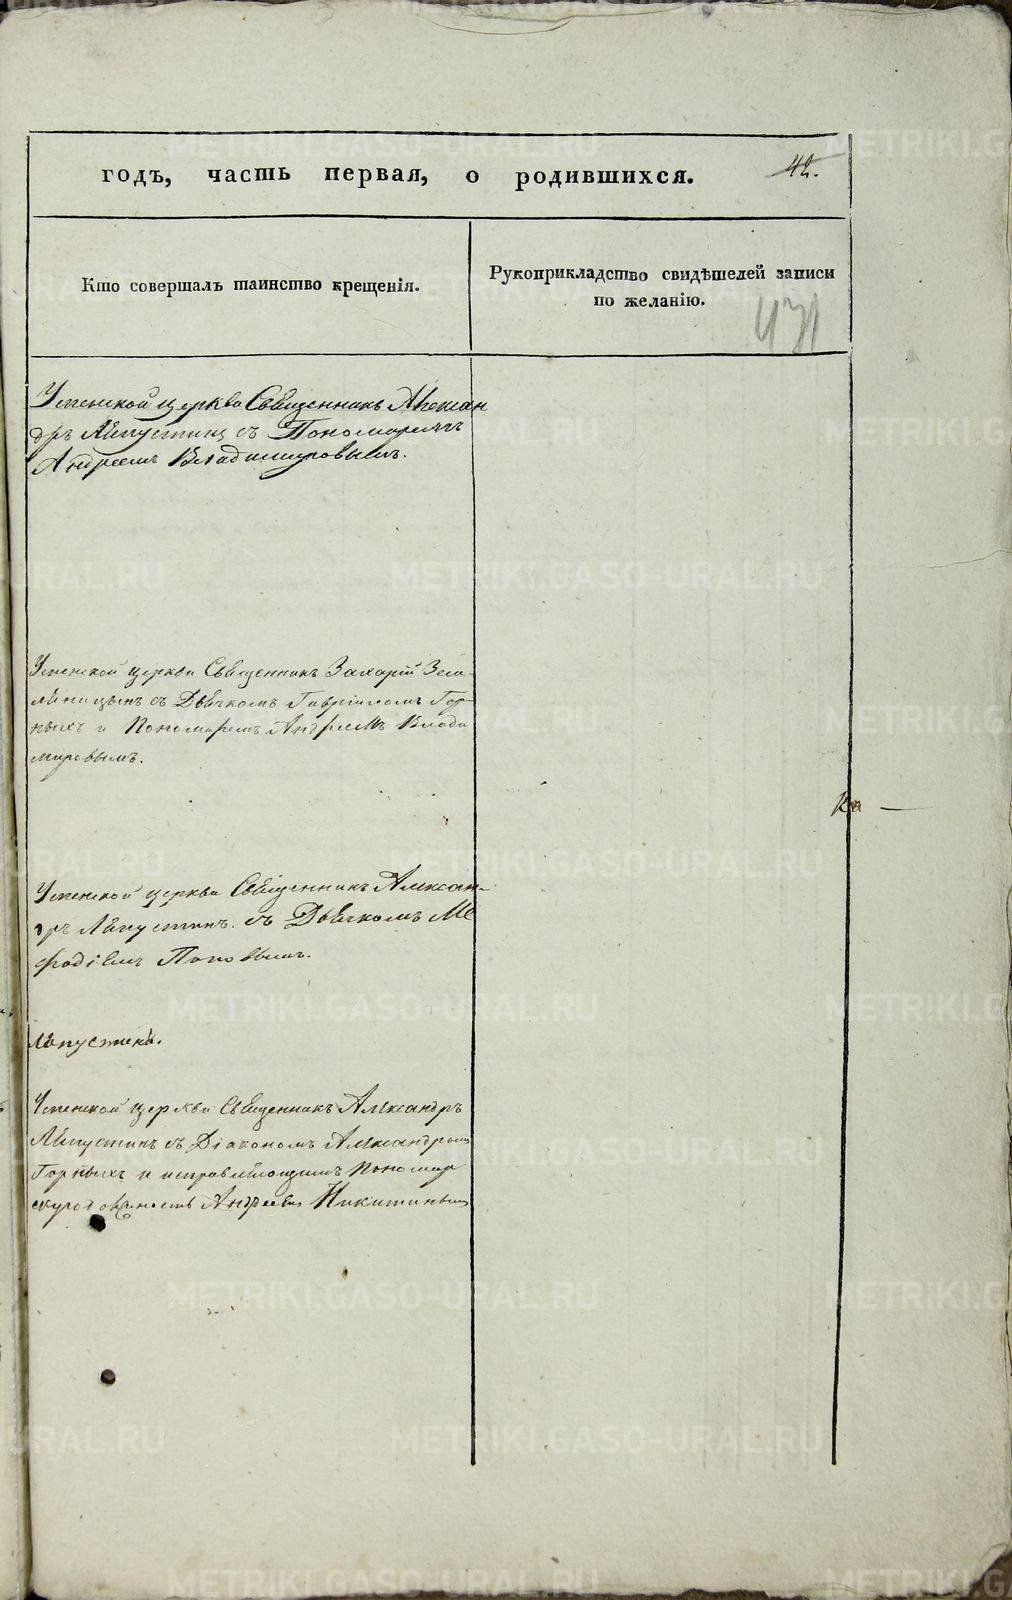 годъ, часть первая, о родившихся. 42.
Кто совершалъ таинство крещенія.
Рукоприкладство свидѣтелей записи
по желанію.
431
церкви Священникъ Алексан
дръ съ Пономаремъ
Андреемъ Владимировымъ.
церкви Священникъ Захарій Зем-
ляницынъ съ Дьячкомъ Гавріиломъ Гор-
ныхъ и Пономаремъ Андреемъ Влади
мировымъ.
церкви Священникъ Алексан-
дръ съ Дьячкомъ Ме
фодіемъ Поповымъ.
церкви Священникъ Александръ
съ Діакономъ Александромъ
Горныхъ и исправляющимъ Пономар
скую должность Никитинымъ
METRIKI.GASO-URAL.RU